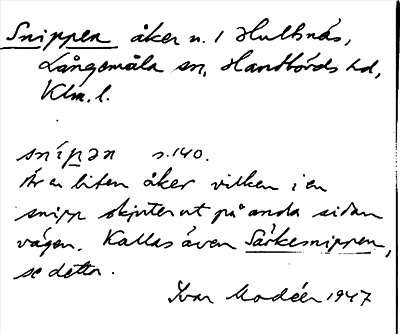 Snippen åker n. 1 Hultsnäs,
Långemåla sn, Handbörds hd,
Klm. l.
snípən s. 140.
Är en liten åker vilken i en
snipp skjuter ut på andra sidan
vägen. Kallas även Särkesnippen,
se detta.
Ivar Modéer 1947